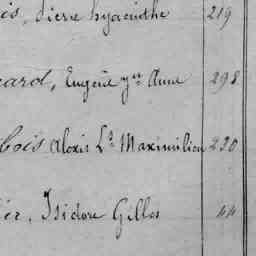 is, Pierre hyacinthe 219
card, Eugène Jn Anne 298
bois Alexis Ls Maximilien 230
ier, Isidore Gilles 44